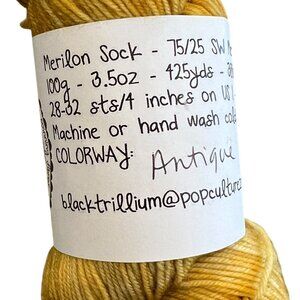 Merilon Sock - 75/25 SW
100g - 3.5oz - 425yds -
28-32 sts/4 inches on US
Machine or hand wash
COLORWAY: Antique
blacktrillium@popculture